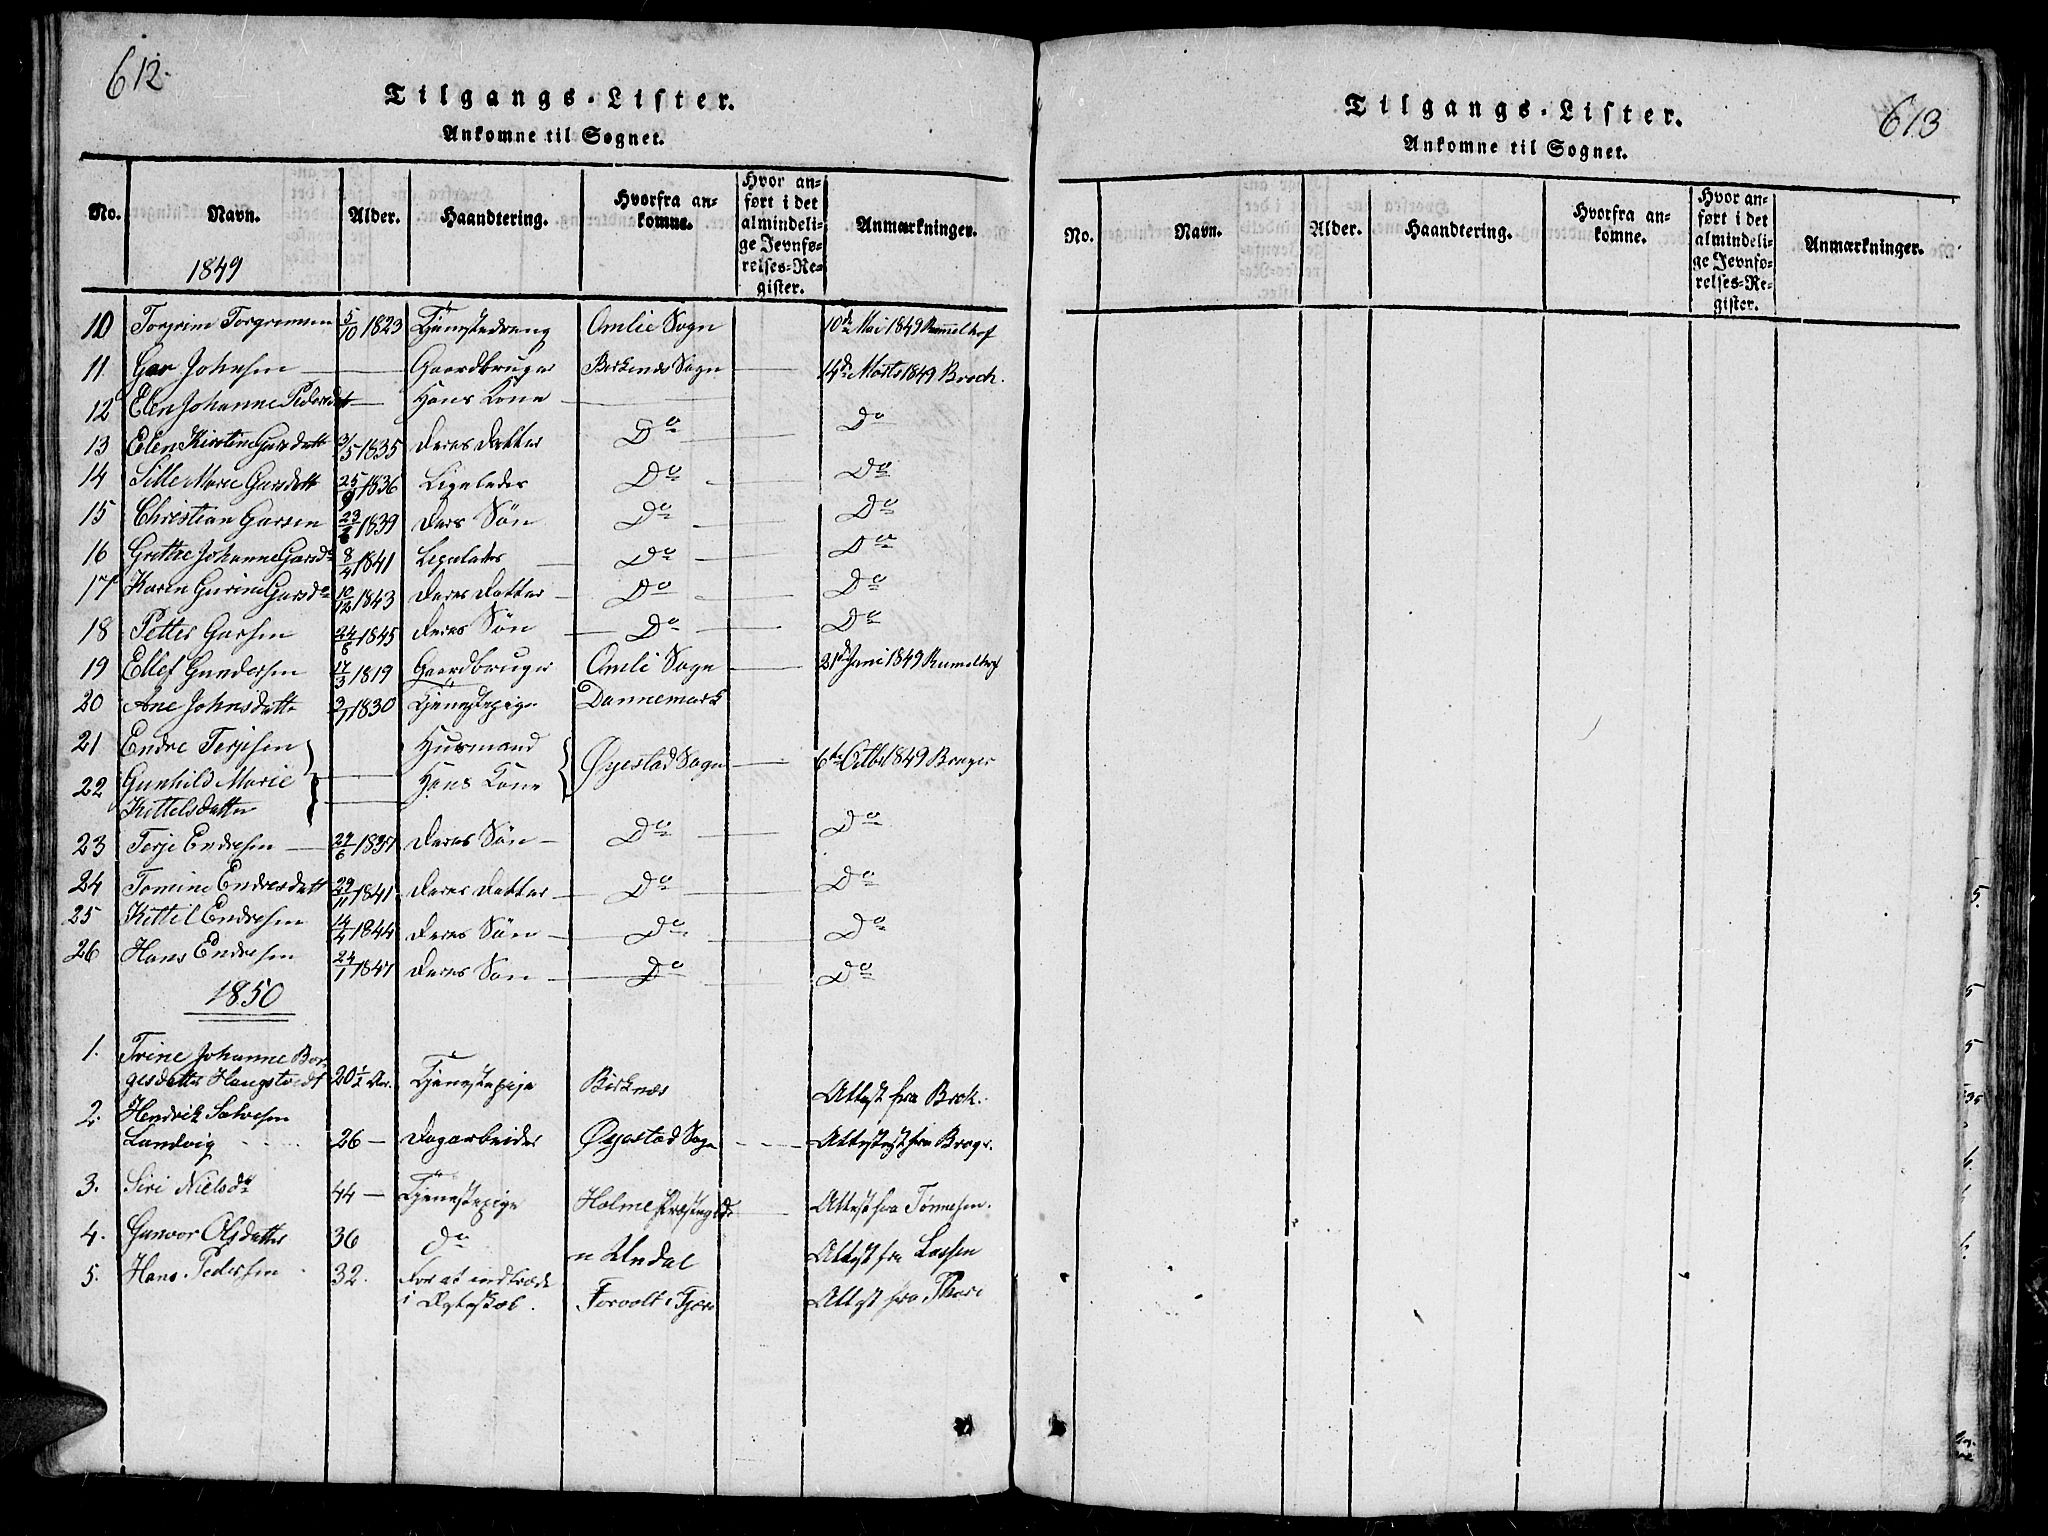 612.
Tilgangs-Lister.
Ankomne til Sognet.
No. Navn. Alder. Haandtering. Hvorfra ankomne. Hvor anført i det almindelige Jevnførelses-Register. Anmærkninger.
1849
10 Torgrim Torgrimsen 5/10 1823 Tjenestedreng Omlie Sogn 10de Mai 1849
11. Gar Johnsen Gaardbruger Birkenæs Sogn 14de Marts 1849 Broch.
12 Elen Johanne Pedersdatt Hans Kone
13 Elen Kirstine Garsdatt 3/5 1835 deres Datter Do Do
14 Sille Marie Garsdatt 25/9 1836 Ligeledes Do Do
15 Christian Garsen 1839 deres Søn Do Do
16 Grethe Johanne Garsdr 8/4 1841 Ligeledes Do Do
17 Karen Gurine Garsdr 10/12 1843 deres Datter Do Do
18 Petter Garsen 24/6 1845 deres Søn Do Do
19 Ellef Gundersen 17/3 1819 Gaardbruger Omli Sogn 21de Juni 1849
20 Ane Johnsdatt 3/1 1830 Tjenestepige Dannemark
21 Endre Terjesen Husmand Øyestad Sogn 6te Octbr 1849
22 Gunhild Marie Hans Kone
Kittelsdatter
23 Terje Endresen 1837 deres Søn Do Do
24 Tomine Endresdatt 29/11 1841 deres Datter Do Do
25 Kittil Endresen 14/4 1844 deres Søn Do Do
26 Hans Endresen 24/1 1847 deres Søn Do Do
1850
1. Trine Johanne Bor-
gesdatter Haugstvedt 20 1/2 Aar. Tjenestepige Birknæs Attest fra Brok.
2. Hendrik Salvesen
Landvig 26 Dagarbeider Øyestad Sogn
3. Siri Nielsdr 44 Tjenestepige Holme Præstegjld. Attest fra Tønnesen.
4. Gunvor Olsdatter 36 do n Undal Attest fra Lassen
5. Hans Pedersen 32. for at indtræde
i Ægteskab. Attest fra
613
Tilgangs-Lister.
Ankomne til Sognet.
No. Navn. Alder. Haandtering. Hvorfra ankomne. Hvor anført i det almindelige Jevnførelses-Register. Anmærkninger.